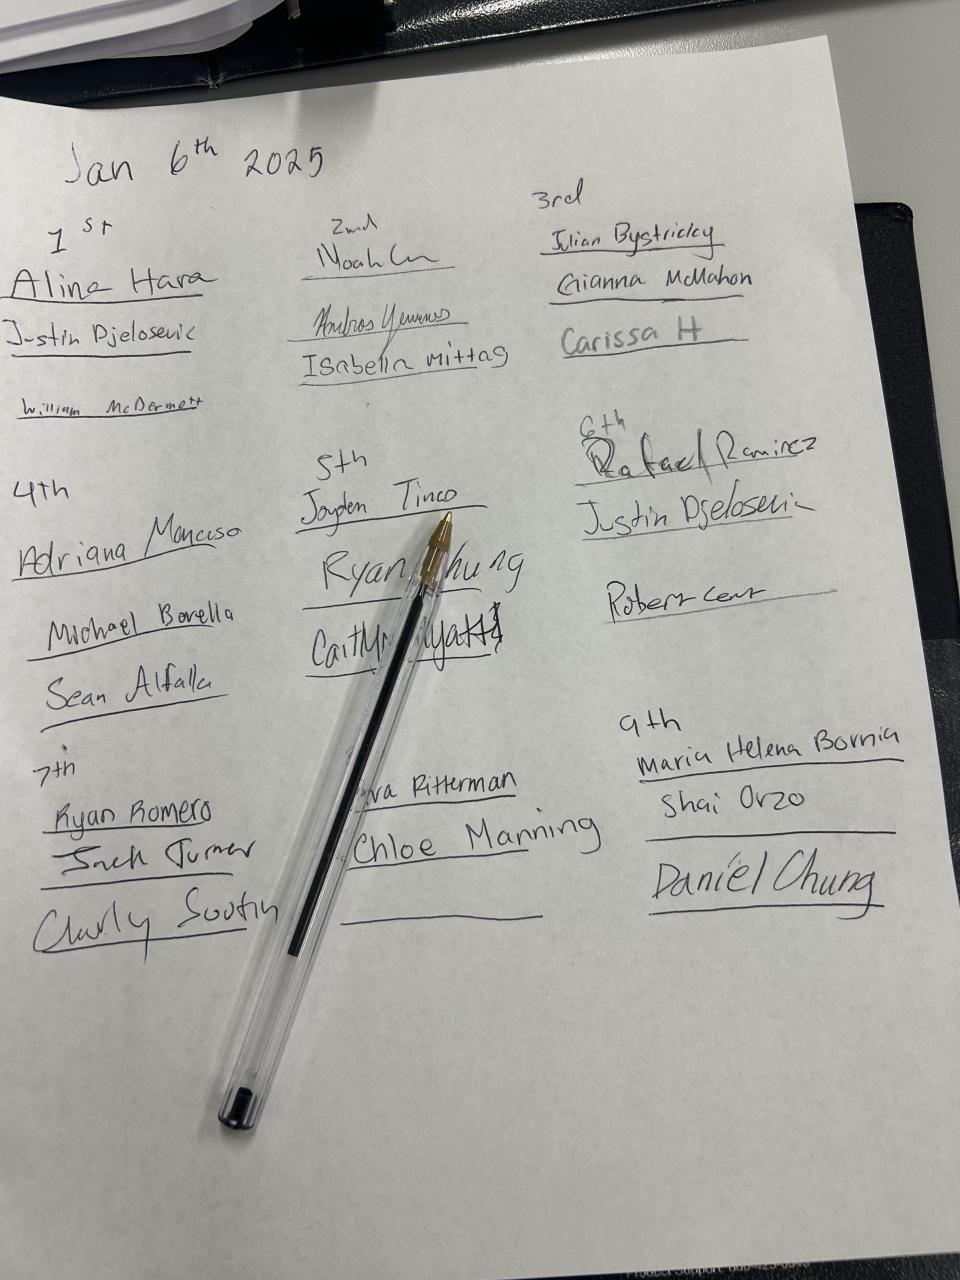 Jan 6th 2025
1st
Aline Hara
Justin Djelosevic
William McDermott
2nd
Noah
Isabella Mittag
3rd
Julian Bystricky
Gianna McMahon
Carissa H
4th
Adriana Mancuso
Michael Borella
Sean Alfalla
5th
Jayden Tinco
Ryan hung
6th
Rafael Ramirez
Justin Djelosevic
Robert
7th
Ryan Romero
Jack Turner
Ritterman
Chloe Manning
9th
Maria Helena Bornia
Shai Orzo
Daniel Chung